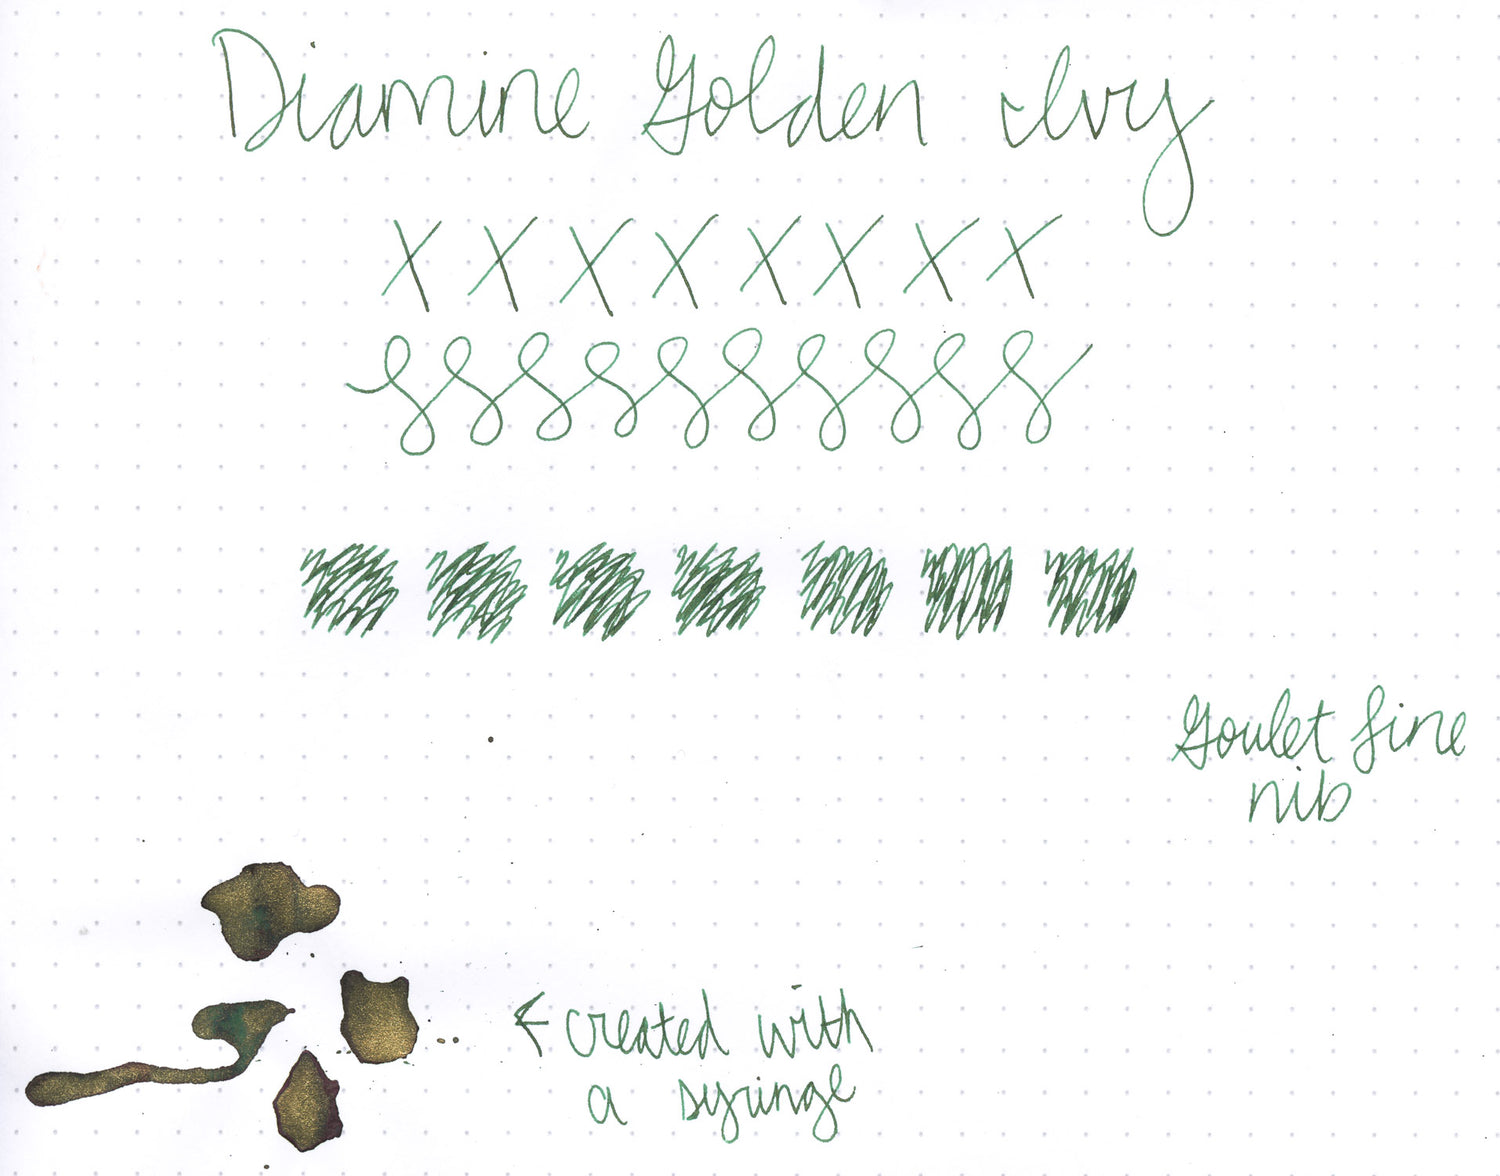 Diamine Golden Ivy
X X X X X X X X
Goulet fine
nib
← created with
a syringe